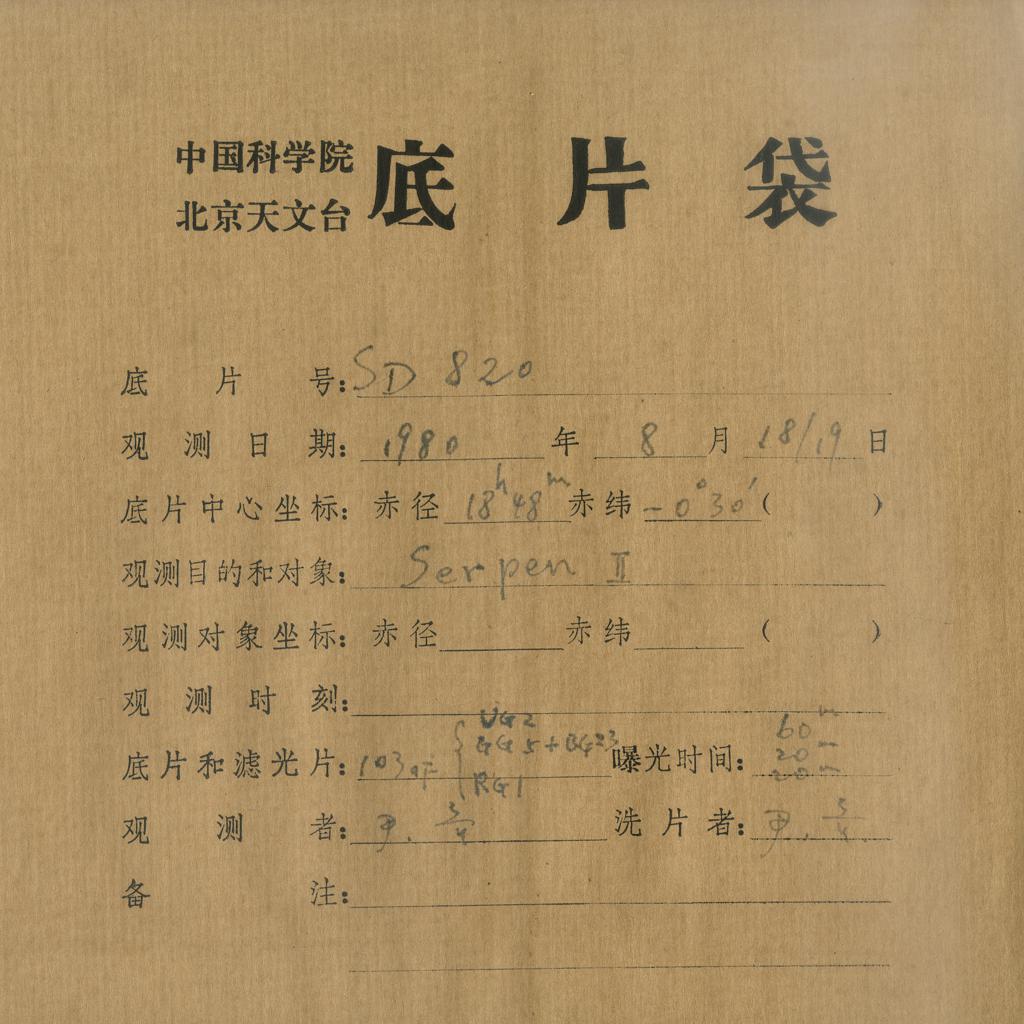 中国科学院
北京天文台
底片袋
底片号: SD 820
观测日期: 1980 年 8 月 18/19 日
底片中心坐标: 赤径 18h 48m 赤纬 -0°30′ ( )
观测目的和对象: Serpen II
观测对象坐标: 赤径 赤纬 ( )
观测时刻:
底片和滤光片: 103aF { UG2 GG5+BG23 RG1 曝光时间: 60m 20m 20m
观测者: 尹. 洗片者: 尹.
备注: